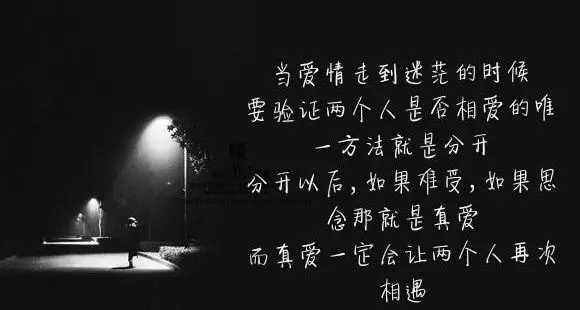 当爱情走到迷茫的时候
要验证两个人是否相爱的唯
一方法就是分开
分开以后,如果难受,如果思
念那就是真爱
而真爱一定会让两个人再次
相遇